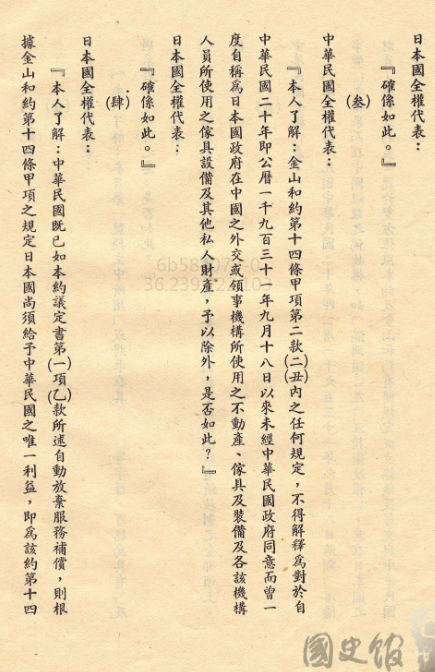 日本國全權代表：
『確係如此。』
(叁)
中華民國全權代表：
『本人了解：金山和約第十四條甲項第二款(二)(丑)內之任何規定，不得解釋為對於自
中華民國二十年即公曆一千九百三十一年九月十八日以來未經中華民國政府同意而曾一
度自稱為日本國政府在中國之外交或領事機構所使用之不動產、傢具及裝備及各該機構
人員所使用之傢具設備及其他私人財產，予以除外，是否如此？』
日本國全權代表：
『確係如此。』
(肆)
日本國全權代表：
『本人了解：中華民國既已如本約議定書第(一)項(乙)款所述自動放棄服務補償，則根
據金山和約第十四條甲項之規定日本國尚須給予中華民國之唯一利益，即為該約第十四
國史館